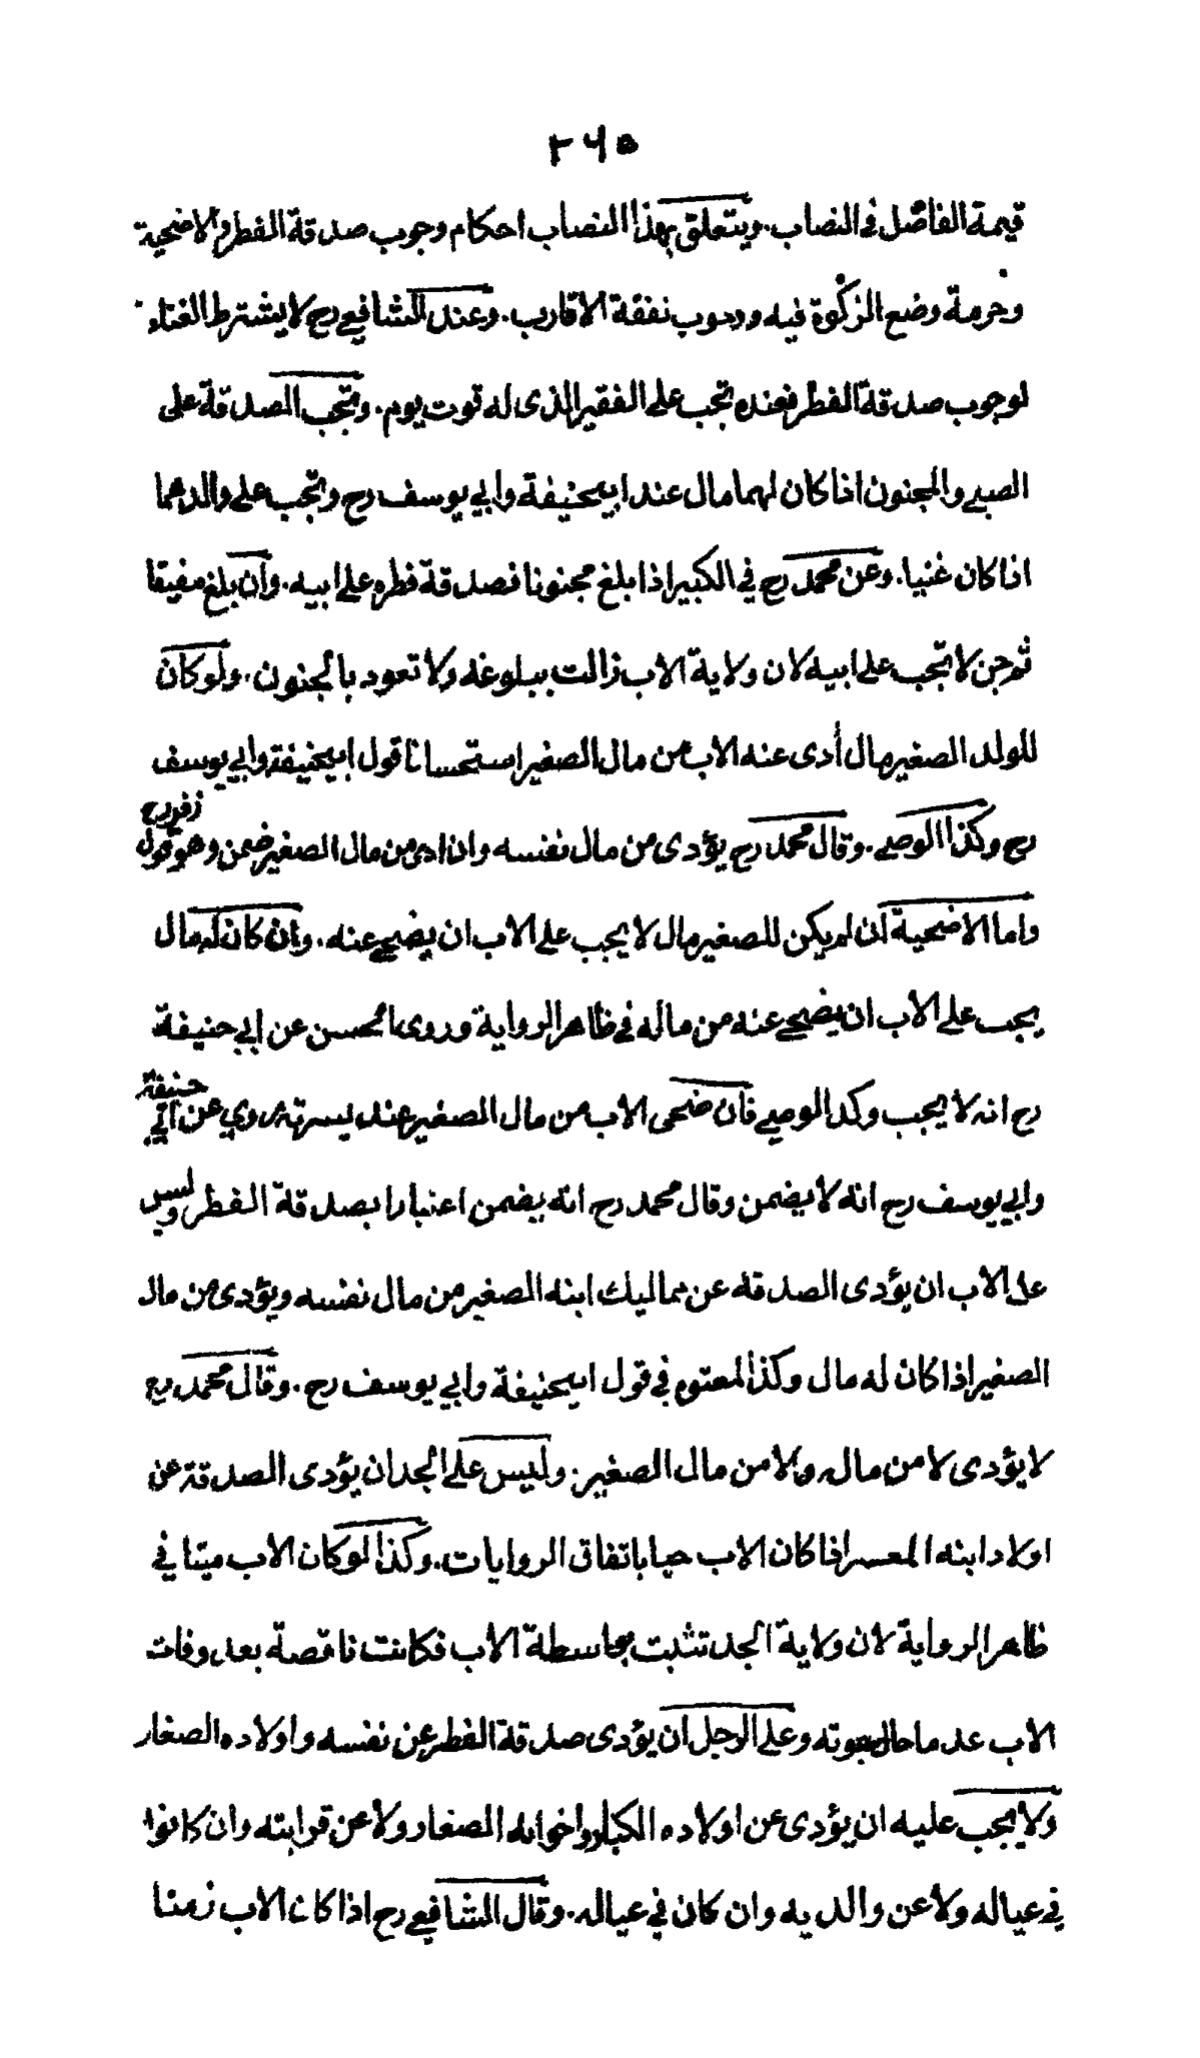 ٢٦٥
قيمة الفاضل في النصاب. ويتعلق بهذا النصاب احكام وجوب صدقة الفطر والاضحية
وحرمة وضع الزكوة فيه ووجوب نفقة الاقارب. وعند الشافعي رح لا يشترط الغناء
لوجوب صدقة الفطر فعنده تجب على الفقير الذى له قوت يوم. وتجب الصدقة على
الصبي والمجنون اذا كان لهما مال عند ابيحنيفة وابي يوسف رح وتجب على والدهما
اذا كان غنيا. وعن محمد رح في الكبير اذا بلغ مجنونا فصدقة فطره على ابيه. وان بلغ مفيقا
ثم جن لا تجب على ابيه لان ولاية الاب زالت ببلوغه ولا تعود بالجنون. ولو كان
للولد الصغير مال أدى عنه الاب من مال الصغير استحسانا قول ابيحنيفة وابي يوسف
رح وكذا الوصي. وقال محمد رح يؤدى من مال نفسه وان ادى من مال الصغير ضمن وهو قول زفر رح
واما الاضحية ان لم يكن للصغير مال لا يجب على الاب ان يضحي عنه. وان كان له مال
يجب على الأب ان يضحي عنه من ماله في ظاهر الرواية وروى الحسن عن ابي حنيفة
رح انه لا يجب وكذا الوصي فان ضحى الاب من مال الصغير عند يسرته روي عن ابي حنيفة
وابي يوسف رح انه لا يضمن وقال محمد رح انه يضمن اعتبارا بصدقة الفطر وليس
على الاب ان يؤدى الصدقة عن مماليك ابنه الصغير من مال نفسه ويؤدى من مال
الصغير اذا كان له مال وكذا المعتوه في قول ابيحنيفة وابي يوسف رح. وقال محمد رح
لا يؤدى لا من ماله ولا من مال الصغير. وليس على الجد ان يؤدى الصدقة عن
اولاد ابنه المعسر اذا كان الاب حيا باتفاق الروايات. وكذا لو كان الاب ميتا في
ظاهر الرواية لان ولاية الجد تثبت بواسطة الأب فكانت ناقصة بعد وفات
الاب عدما حال حيوته وعلى الرجل ان يؤدى صدقة الفطر عن نفسه واولاده الصغار
ولا يجب عليه ان يؤدى عن اولاده الكبار واخوانه الصغار ولا عن قرابته وان كانوا
في عياله ولا عن والديه وان كان في عياله. وقال الشافعي رح اذا كان الاب زمنا